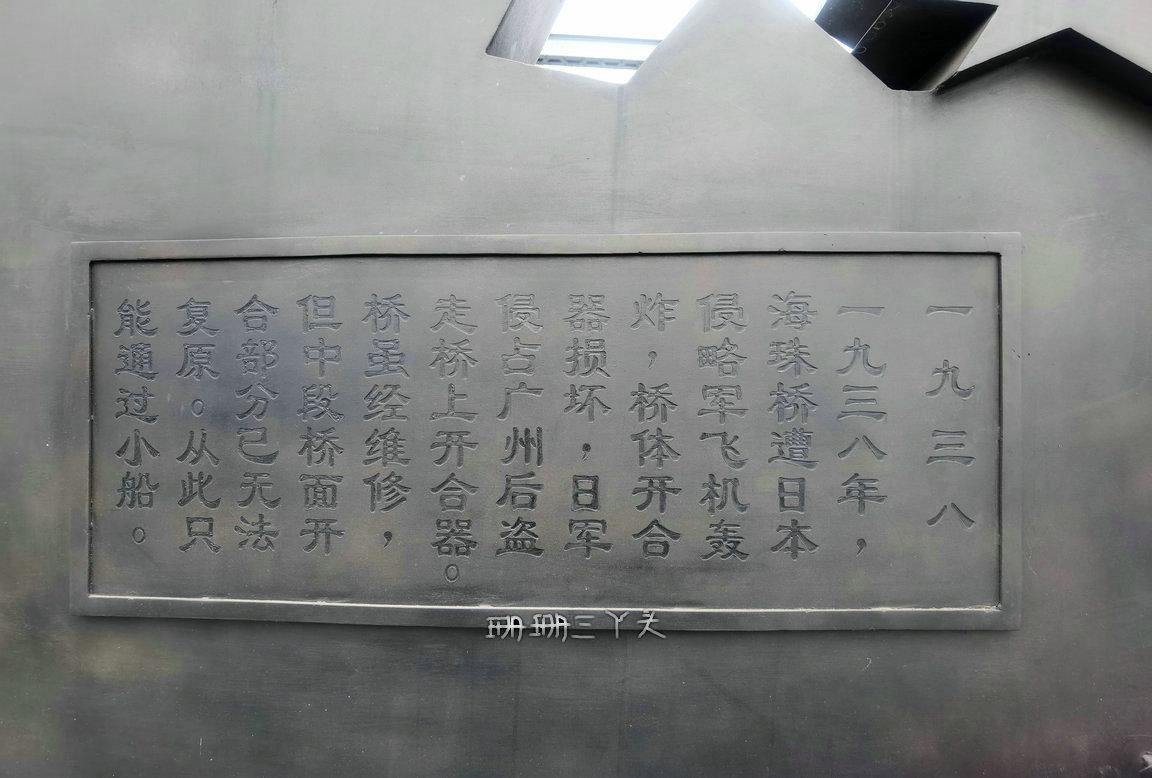 一九三八
一九三八年，
海珠桥遭日本
侵略军飞机轰
炸，桥体开合
器损坏，日军
侵占广州后盗
走桥上开合器。
桥虽经维修，
但中段桥面开
合部分已无法
复原。从此只
能通过小船。
珊珊三丫头